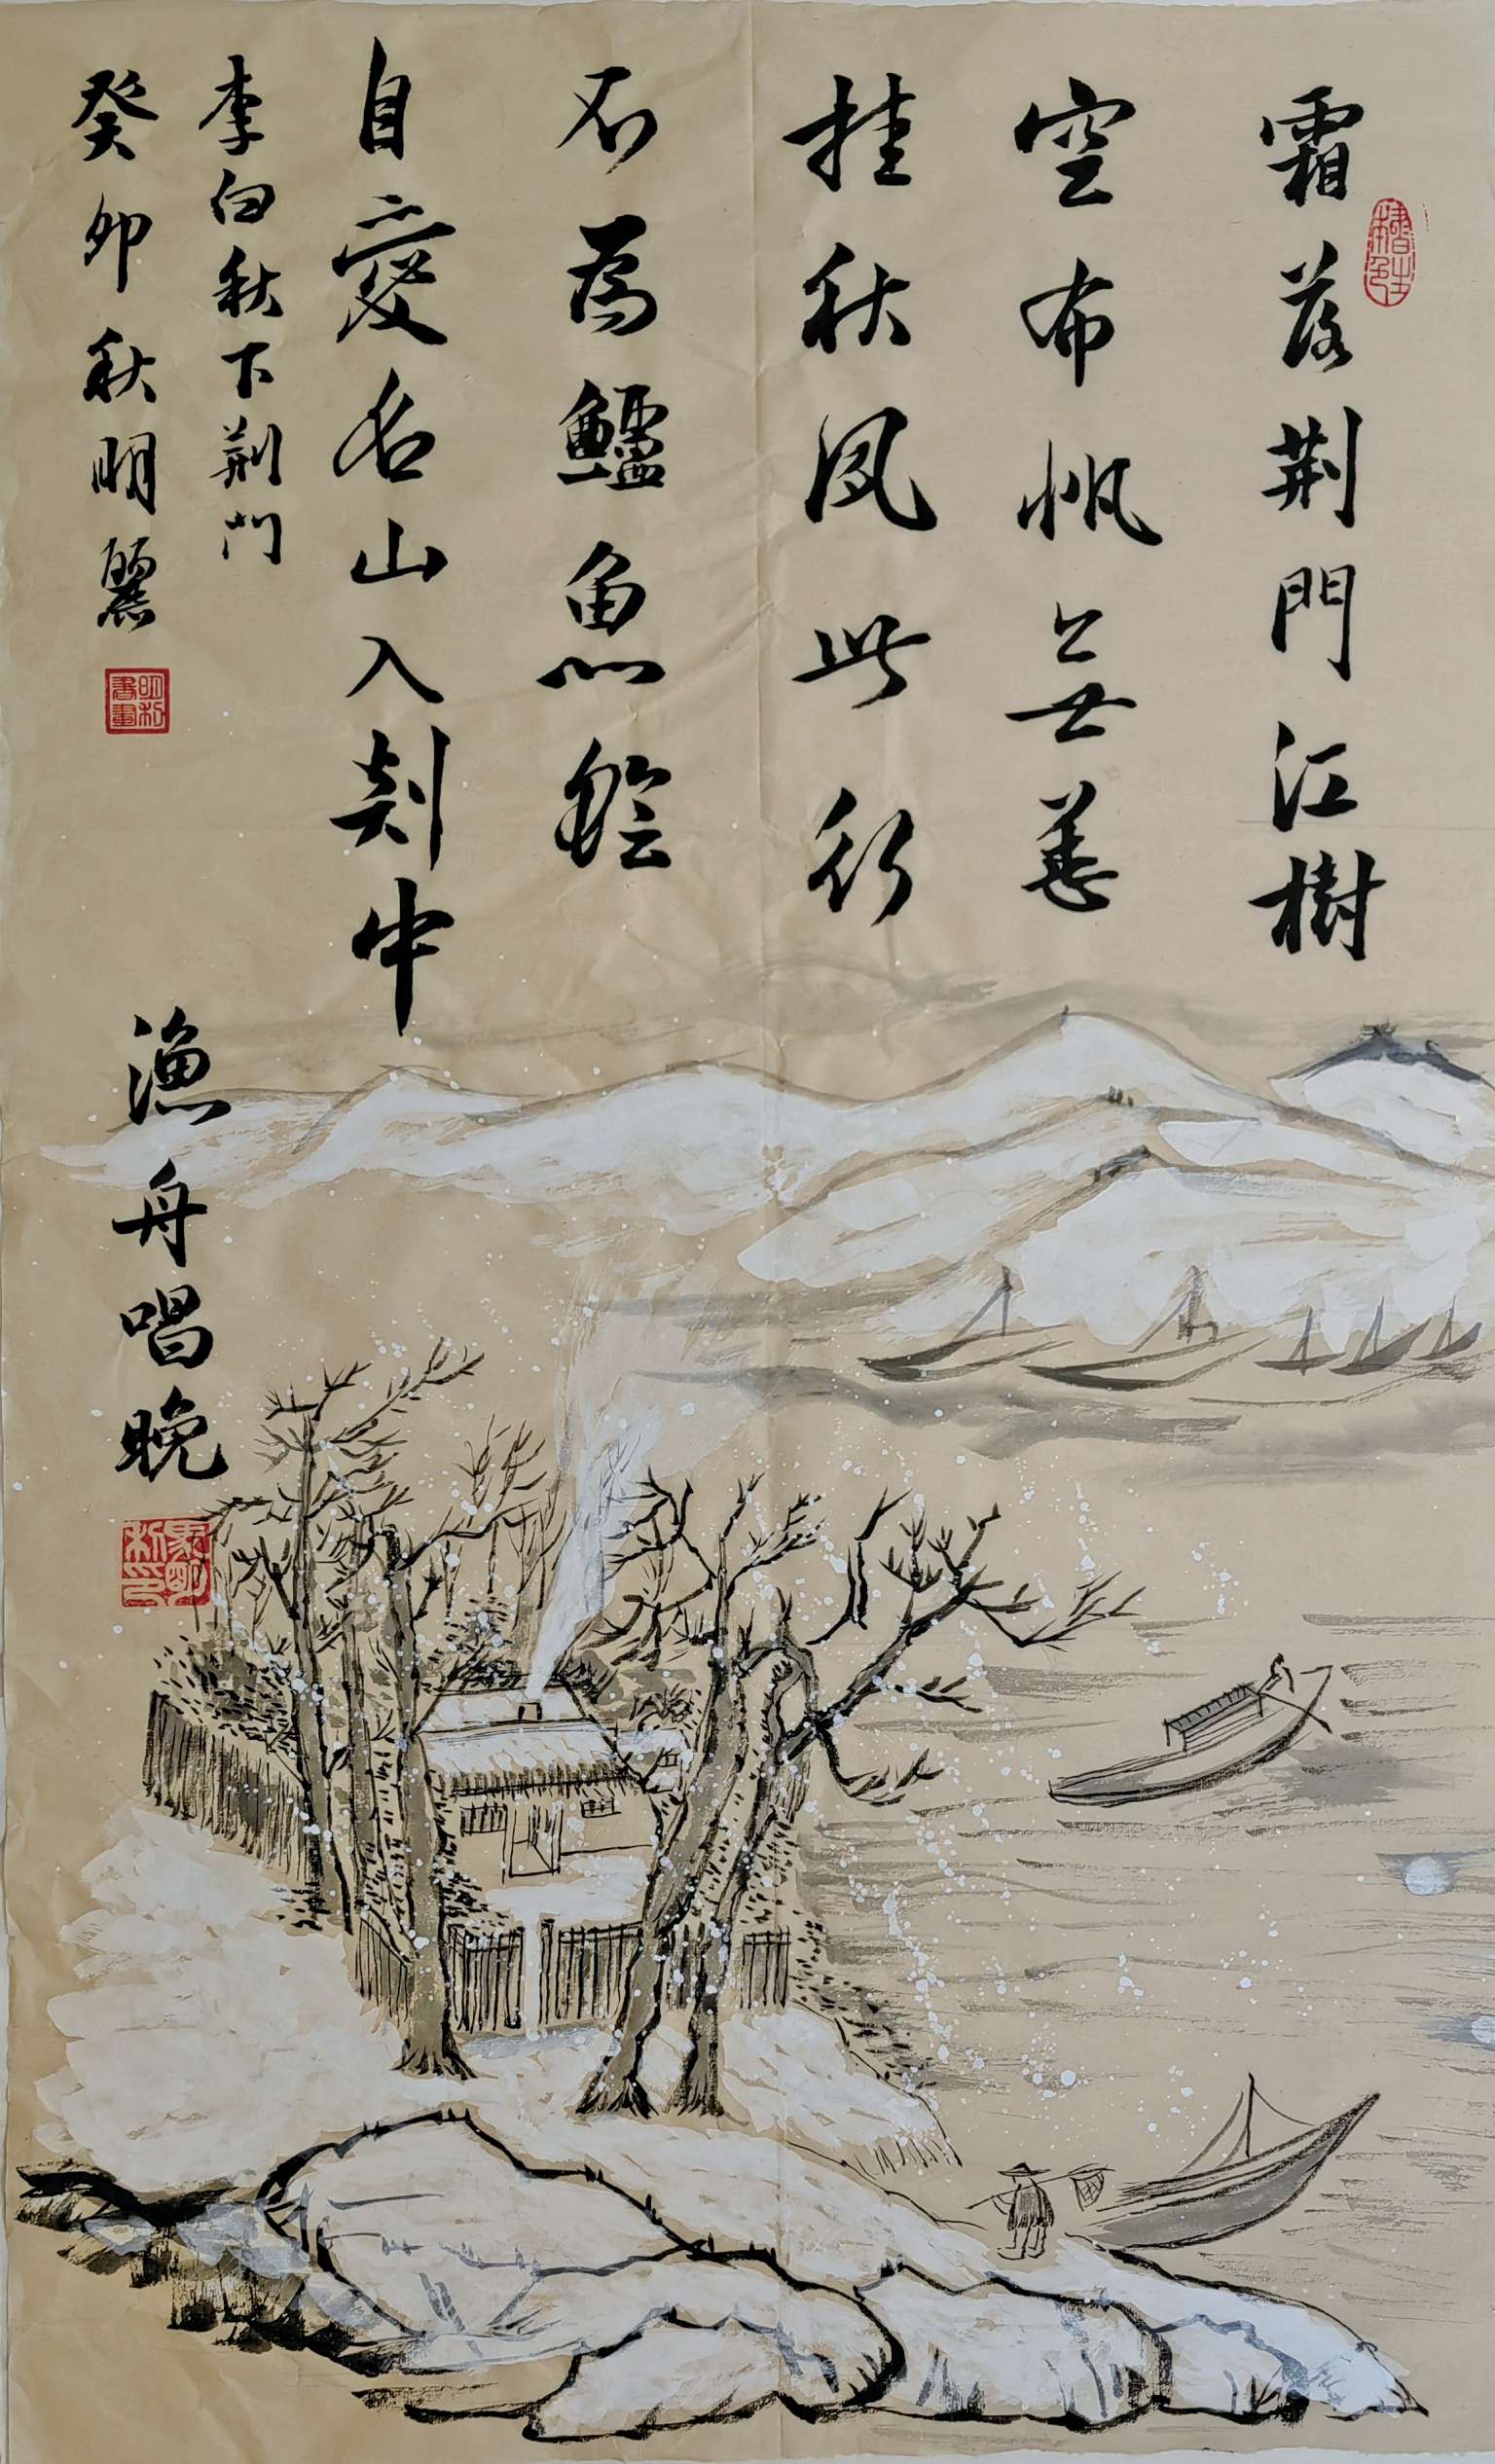 霜落荆門江樹
空布帆無恙
挂秋风此行
不為鱸魚鱠
自愛名山入剡中
李白秋下荆门
癸卯秋明麗
明利書畫
漁舟唱晚